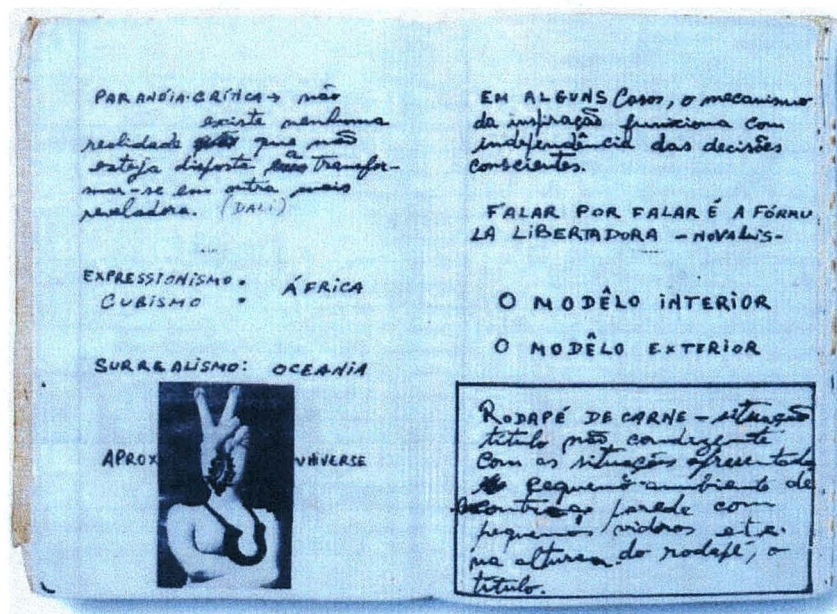 PARANÓIA-CRÍTICA → não
existe nenhuma
realidade que não
esteja disposta a transfor-
mar-se em outra mais
reveladora. (DALI)
EXPRESSIONISMO:
CUBISMO : ÁFRICA
SURREALISMO: OCEANIA
APROX UNIVERSE
EM ALGUNS Casos, o mecanismo
da inspiração funciona com
independência das decisões
conscientes.
FALAR POR FALAR É A FÓRMU
LA LIBERTADORA -NOVALIS-
O MODÊLO INTERIOR
O MODÊLO EXTERIOR
RODAPÉ DE CARNE - situação
título não condizente
com as situações apresentada
pequeno ambiente de
parede com
pequenos vidros etc.
na altura do rodapé, o
título.